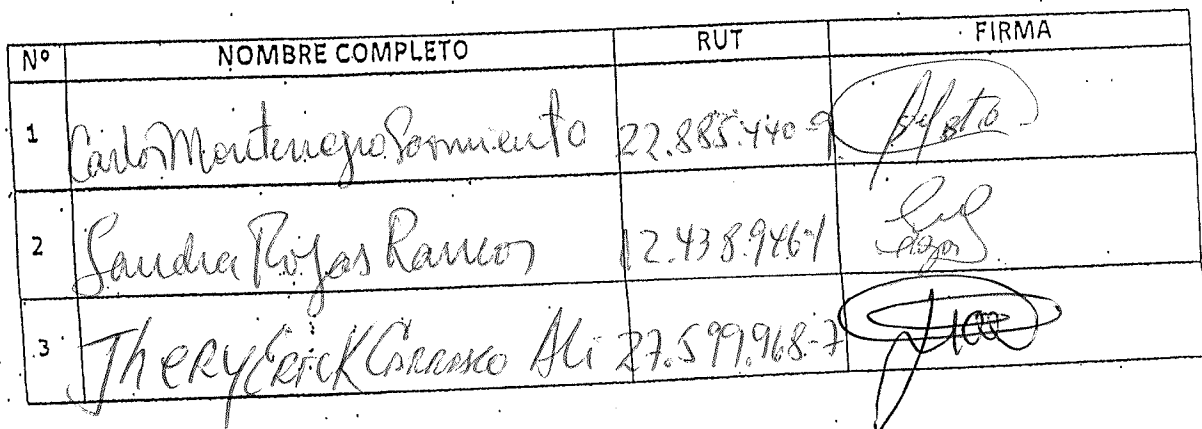 Nº NOMBRE COMPLETO RUT FIRMA
1 Carlos Montenegro Sarmiento 22.885.440-9
2 Sandra Rojas Ramos 12.438.946-1
3 Jhery Erick Carrasco Ali 27.599.968-7